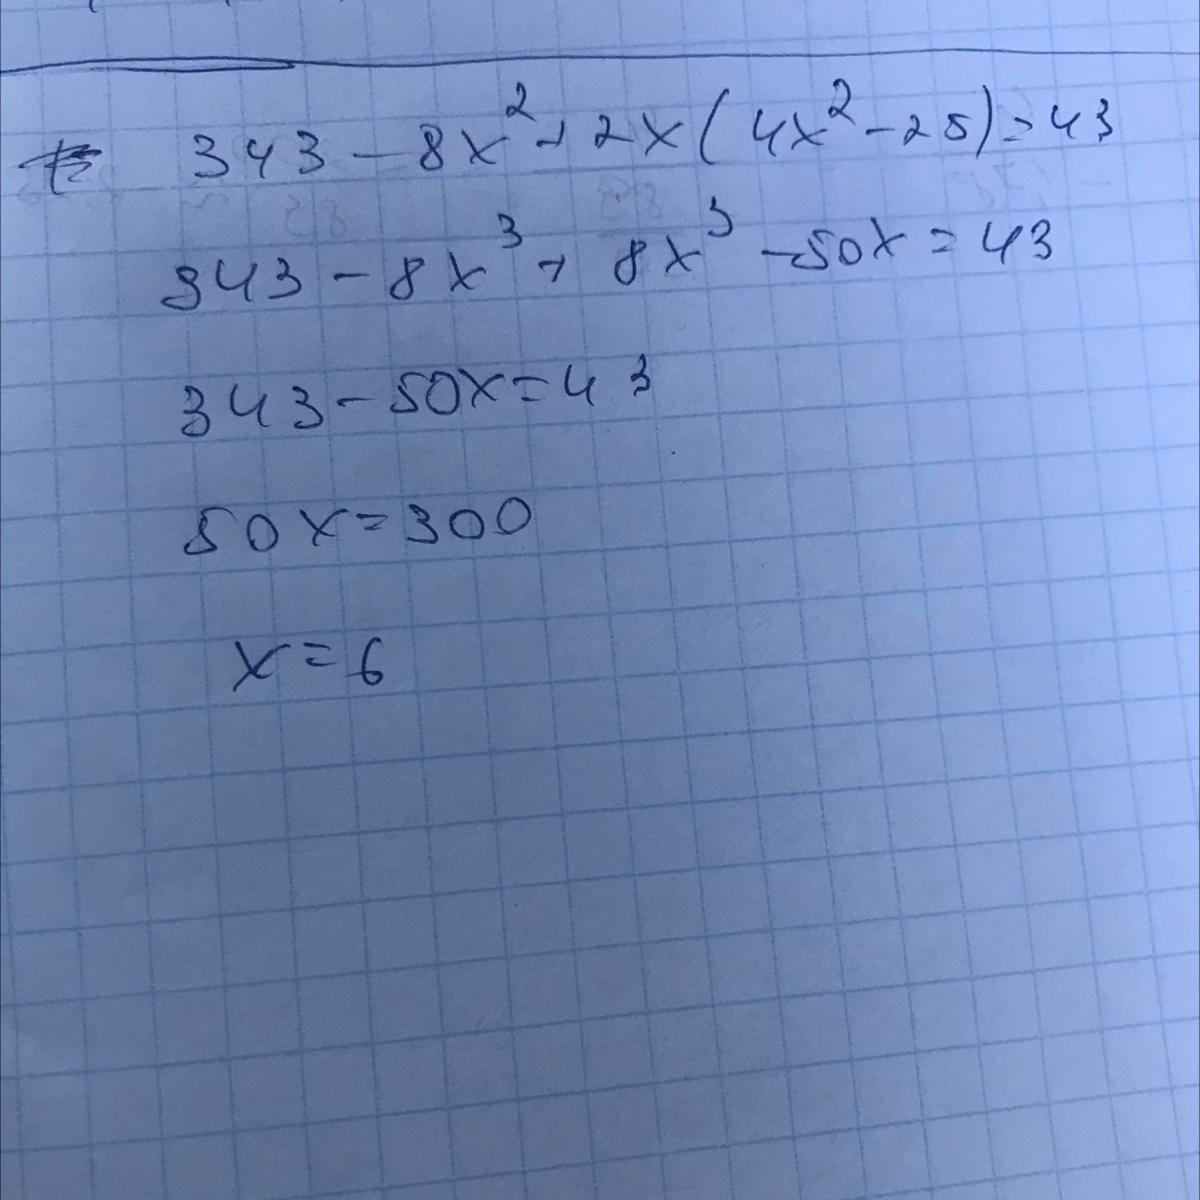 343 - 8x² + 2x(4x² - 25) = 43
343 - 8x³ + 8x³ - 50x = 43
343 - 50x = 43
50x = 300
x = 6